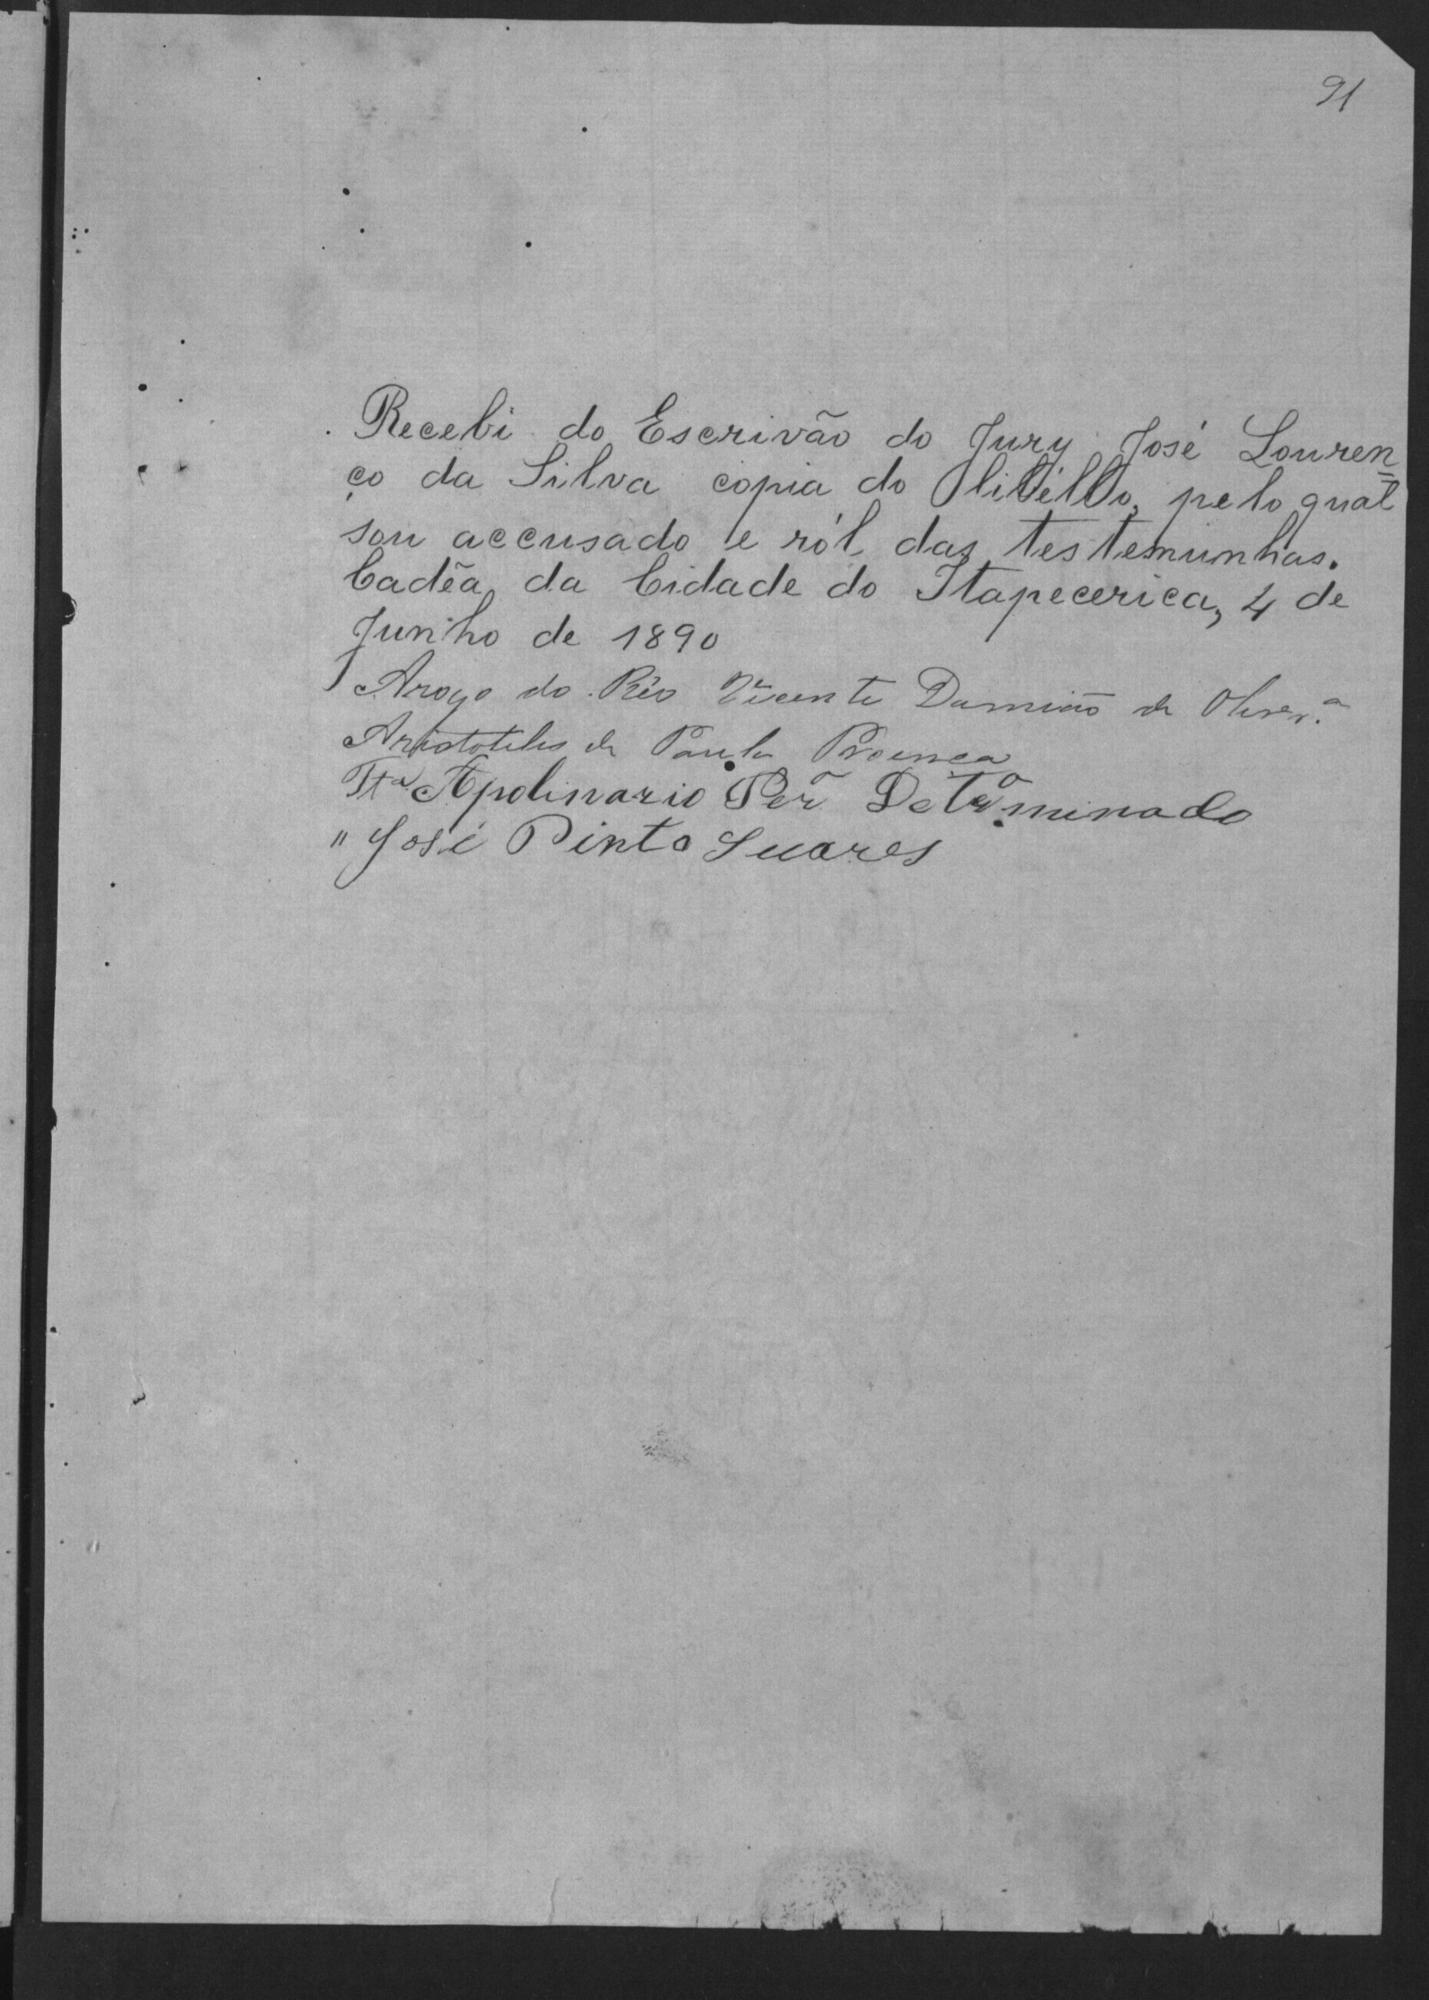 91
Recebi do Escrivão do Jury José Louren
ço da Silva copia do libéllo, pelo qual
sou accusado e ról das testemunhas.
Cadêa da Cidade do Itapecerica, 4 de
Junho de 1890
Arogo do Réo Vicente Damião de Oliver.ª
Aristoteles de Paula Proença
Ttª Apolinario Perª Determinado
" José Pinto Suares